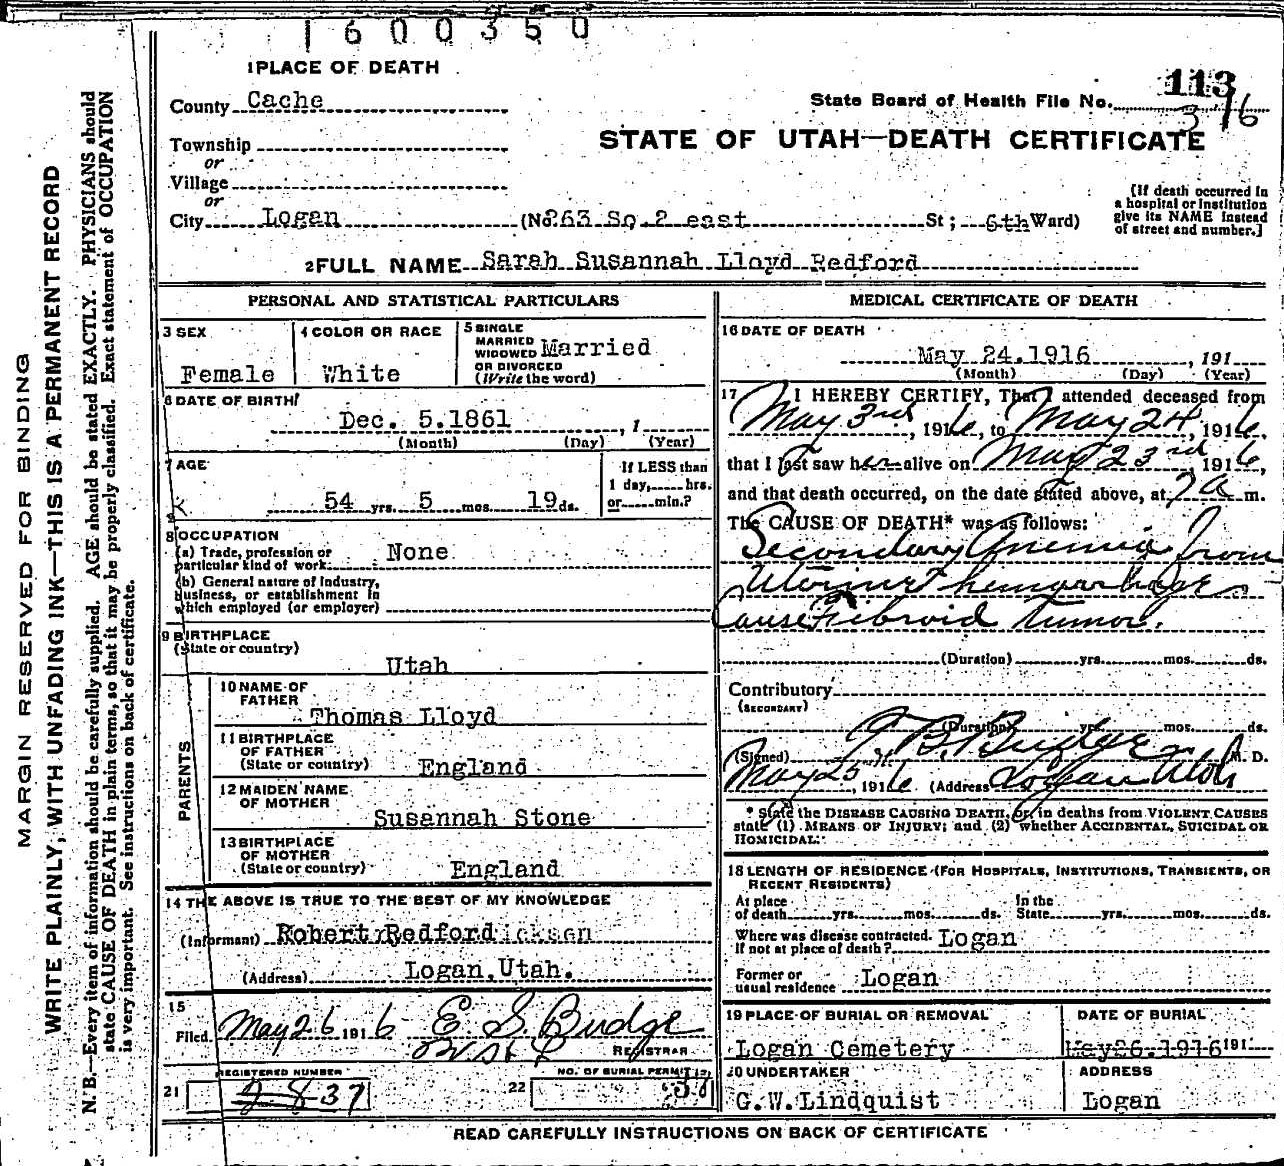 1600350
1 PLACE OF DEATH
County Cache
State Board of Health File No. 113
376
Township
or
STATE OF UTAH—DEATH CERTIFICATE
Village
or
City Logan (No. 263 So. 2 east St; 6th Ward)
(If death occurred in
a hospital or institution
give its NAME instead
of street and number.]
2 FULL NAME Sarah Susannah Lloyd Redford
PERSONAL AND STATISTICAL PARTICULARS
3 SEX
Female
4 COLOR OR RACE
White
5 SINGLE
MARRIED
WIDOWED
OR DIVORCED
(Write the word)
Married
6 DATE OF BIRTH
Dec. 5.1861, 1
(Month) (Day) (Year)
7 AGE
54 yrs. 5 mos. 19 ds.
If LESS than
1 day, hrs.
or min.?
8 OCCUPATION
(a) Trade, profession or
particular kind of work
None
(b) General nature of Industry,
business, or establishment in
which employed (or employer)
9 BIRTHPLACE
(State or country)
Utah
PARENTS
10 NAME OF
FATHER
Thomas Lloyd
11 BIRTHPLACE
OF FATHER
(State or country)
England
12 MAIDEN NAME
OF MOTHER
Susannah Stone
13 BIRTHPLACE
OF MOTHER
(State or country)
England
14 THE ABOVE IS TRUE TO THE BEST OF MY KNOWLEDGE
(Informant) Robert Redford
(Address) Logan, Utah.
15
Filed May 26 1916 E. S. Budge
REGISTRAR
REGISTERED NUMBER
21 2837
NO. OF BURIAL PERMIT
22
MEDICAL CERTIFICATE OF DEATH
16 DATE OF DEATH
May 24.1916, 191
(Month) (Day) (Year)
17 I HEREBY CERTIFY, That I attended deceased from
May 3rd, 1916, to May 24, 1916,
that I last saw her alive on May 23rd 1916,
and that death occurred, on the date stated above, at 7 a m.
The CAUSE OF DEATH* was as follows:
Secondary Anemia from
Uterine hemorrhage
Cause Fibroid Tumor.
(Duration) yrs. mos. ds.
Contributory
(SECONDARY)
(Duration) yrs. mos. ds.
(Signed) Budge M. D.
May 25, 1916 (Address Logan Utah
* State the DISEASE CAUSING DEATH, or, in deaths from VIOLENT CAUSES
state (1) MEANS OF INJURY; and (2) whether ACCIDENTAL, SUICIDAL OR
HOMICIDAL.
18 LENGTH OF RESIDENCE (FOR HOSPITALS, INSTITUTIONS, TRANSIENTS, OR
RECENT RESIDENTS)
At place
of death yrs. mos. ds.
In the
State yrs. mos. ds.
Where was disease contracted.
If not at place of death?
Logan
Former or
usual residence
Logan
19 PLACE OF BURIAL OR REMOVAL
Logan Cemetery
DATE OF BURIAL
May26.1916 191
20 UNDERTAKER
G.W.Lindquist
ADDRESS
Logan
READ CAREFULLY INSTRUCTIONS ON BACK OF CERTIFICATE
MARGIN RESERVED FOR BINDING
WRITE PLAINLY, WITH UNFADING INK—THIS IS A PERMANENT RECORD
N. B.—Every item of information should be carefully supplied. AGE should be stated EXACTLY. PHYSICIANS should
state CAUSE OF DEATH in plain terms, so that it may be properly classified. Exact statement of OCCUPATION
is very important. See instructions on back of certificate.